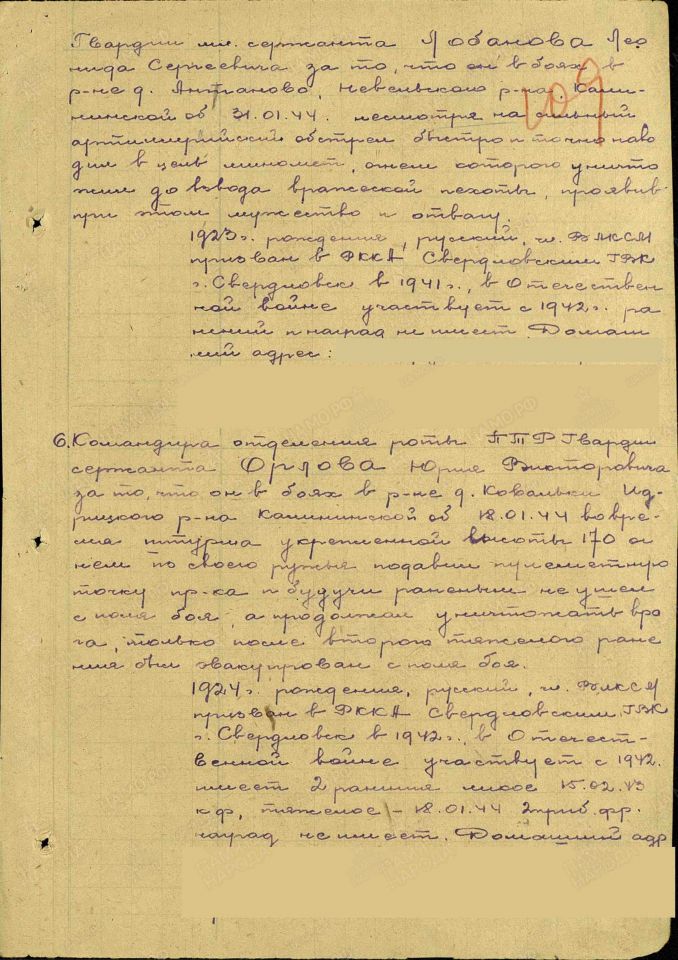 Гвардии мл. сержанта Лобанова Лео
нида Сергеевича за то, что он в боях в
р-не д. Антаново, Невельского р-на, Кали-
нинской об 31.01.44. несмотря на сильный
109
артиллерийский обстрел быстро и точно наво
дил в цель миномет, огнем которого уничто
жил до взвода вражеской пехоты, проявив
при этом мужество и отвагу.
1923 г. рождения, русский, чл. ВЛКСМ
призван в РККА Свердловским ГВК
г. Свердловск в 1941 г., в Отечествен
ной войне участвует с 1942 г. ра
нений и наград не имеет. Домаш
ний адрес:
6. Командира отделения роты ПТР Гвардии
сержанта Орлова Юрия Викторовича
за то, что он в боях в р-не д. Ковальки Ид-
рицкого р-на Калининской об 18.01.44 во вре-
мя штурма укрепленной высоты 170 ог
нем по своего ружья подавил пулеметную
точку пр-ка и будучи раненым не ушел
с поля боя, а продолжал уничтожать вра
га, только после второго тяжелого ране
ния был эвакуирован с поля боя.
1924 г. рождения, русский, чл. ВЛКСМ
призван в РККА Свердловским ГВК
г. Свердловск в 1942 г., в Отечест-
венной войне участвует с 1942.
имеет 2 ранения 15.02.43
тяжелое - 18.01.44 2 приб. фр.
наград не имеет. Домашний адр